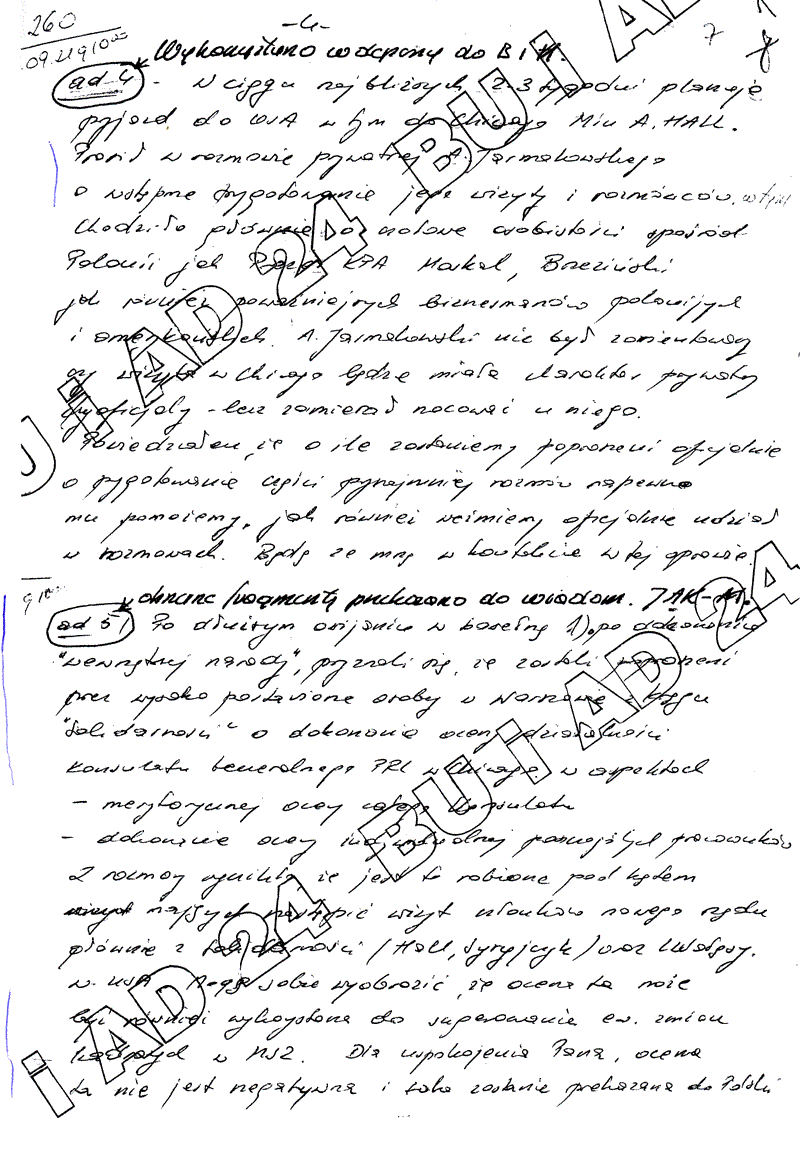 260
- 4 -
7
09.21 9 10
Wykorzystano w depeszy do B i H.
ad 4 - W ciągu najbliższych 2-3 tygodni planuje
przyjazd do USA w tym do Chicago Min A. HALL.
Prosił w rozmowie prywatnej A. Jarmakowskiego
o wstępne przygotowanie jego wizyty i rozmówców, w tym
Chodziło głównie o czołowe osobistości spośród
Polonii jak Prezes KPA Moskal, Brzeziński
jak również poważniejszych biznesmanów polonijnych
i amerykańskich. A. Jarmakowski nie był zorientowany
czy wizyta w Chicago będzie miała charakter prywatny
czy oficjalny - lecz zamierzał nocować u niego.
Powiedziałem, że o ile zostaniemy poproszeni oficjalnie
o przygotowanie części przynajmniej rozmów napewno
mu pomożemy, jak również weźmiemy oficjalnie udział
w rozmowach. Będę ze mną w kontakcie w tej sprawie.
9 10
fragmenty przekazano do wiadom.
ad 5/ Po dłuższym w 1). po dokonaniu
"wewnętrznej narady", przyznali się, że zostali poproszeni
przez wysoko postawione osoby w Warszawie z kręgu
"Solidarności" o dokonanie oceny działalności
Konsulatu Generalnego PRL w Chicago w aspektach
- merytorycznej oceny całego Konsulatu
- dokonanie oceny indywidualnej poszczególnych pracowników
Z rozmowy wynikło że jest to robione pod kątem
mających nastąpić wizyt członków nowego rządu
głównie z Solidarności / Hall, Syryjczyk / oraz Wałęsy.
w USA Mogę sobie wyobrazić, że ocena ta może
być również wykorzystana do sugerowania ew. zmian
kadrowych w MSZ. Dla uspokojenia Pana, ocena
ta nie jest negatywna i taka zostanie przekazana do Polski
BU i AD 24 BU i AD
BU i AD 24 BU i AD 24
i AD 24 BU i AD 24